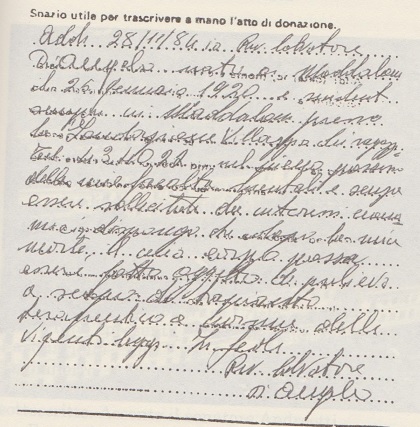 Spazio utile per trascrivere a mano l'atto di donazione.
Addì 28/11/84 io Riv. Salvatore
D'Angelo nato a Maddaloni
il 26 gennaio 1920 e resident
sempre in Maddaloni presso
la Fondazione Villaggio dei ragazzi
nel pieno possesso
delle mie facoltà mentali e senza
essere sollecitato da interessi
dispongo che dopo la mia
morte, il mio corpo possa
essere fatto oggetto di prelievo
a scopo di trapianto
terapeutico a norma delle
vigenti leggi. In fede
Salvatore
D'Angelo